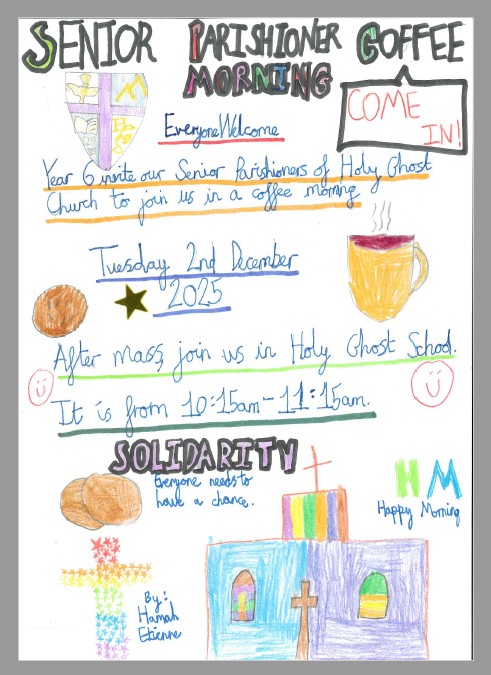 SENIOR PARISHIONER COFFEE
MORNING
COME
IN!
Everyone Welcome
Year 6 invite our Senior Parishioners of Holy Ghost
Church to join us in a coffee morning
Tuesday 2nd December
2025
After mass, join us in Holy Ghost School.
It is from 10:15am-11:15am.
SOLIDARITY
Everyone needs to
have a chance.
HM
Happy Morning
By:
Hannah
Etienne